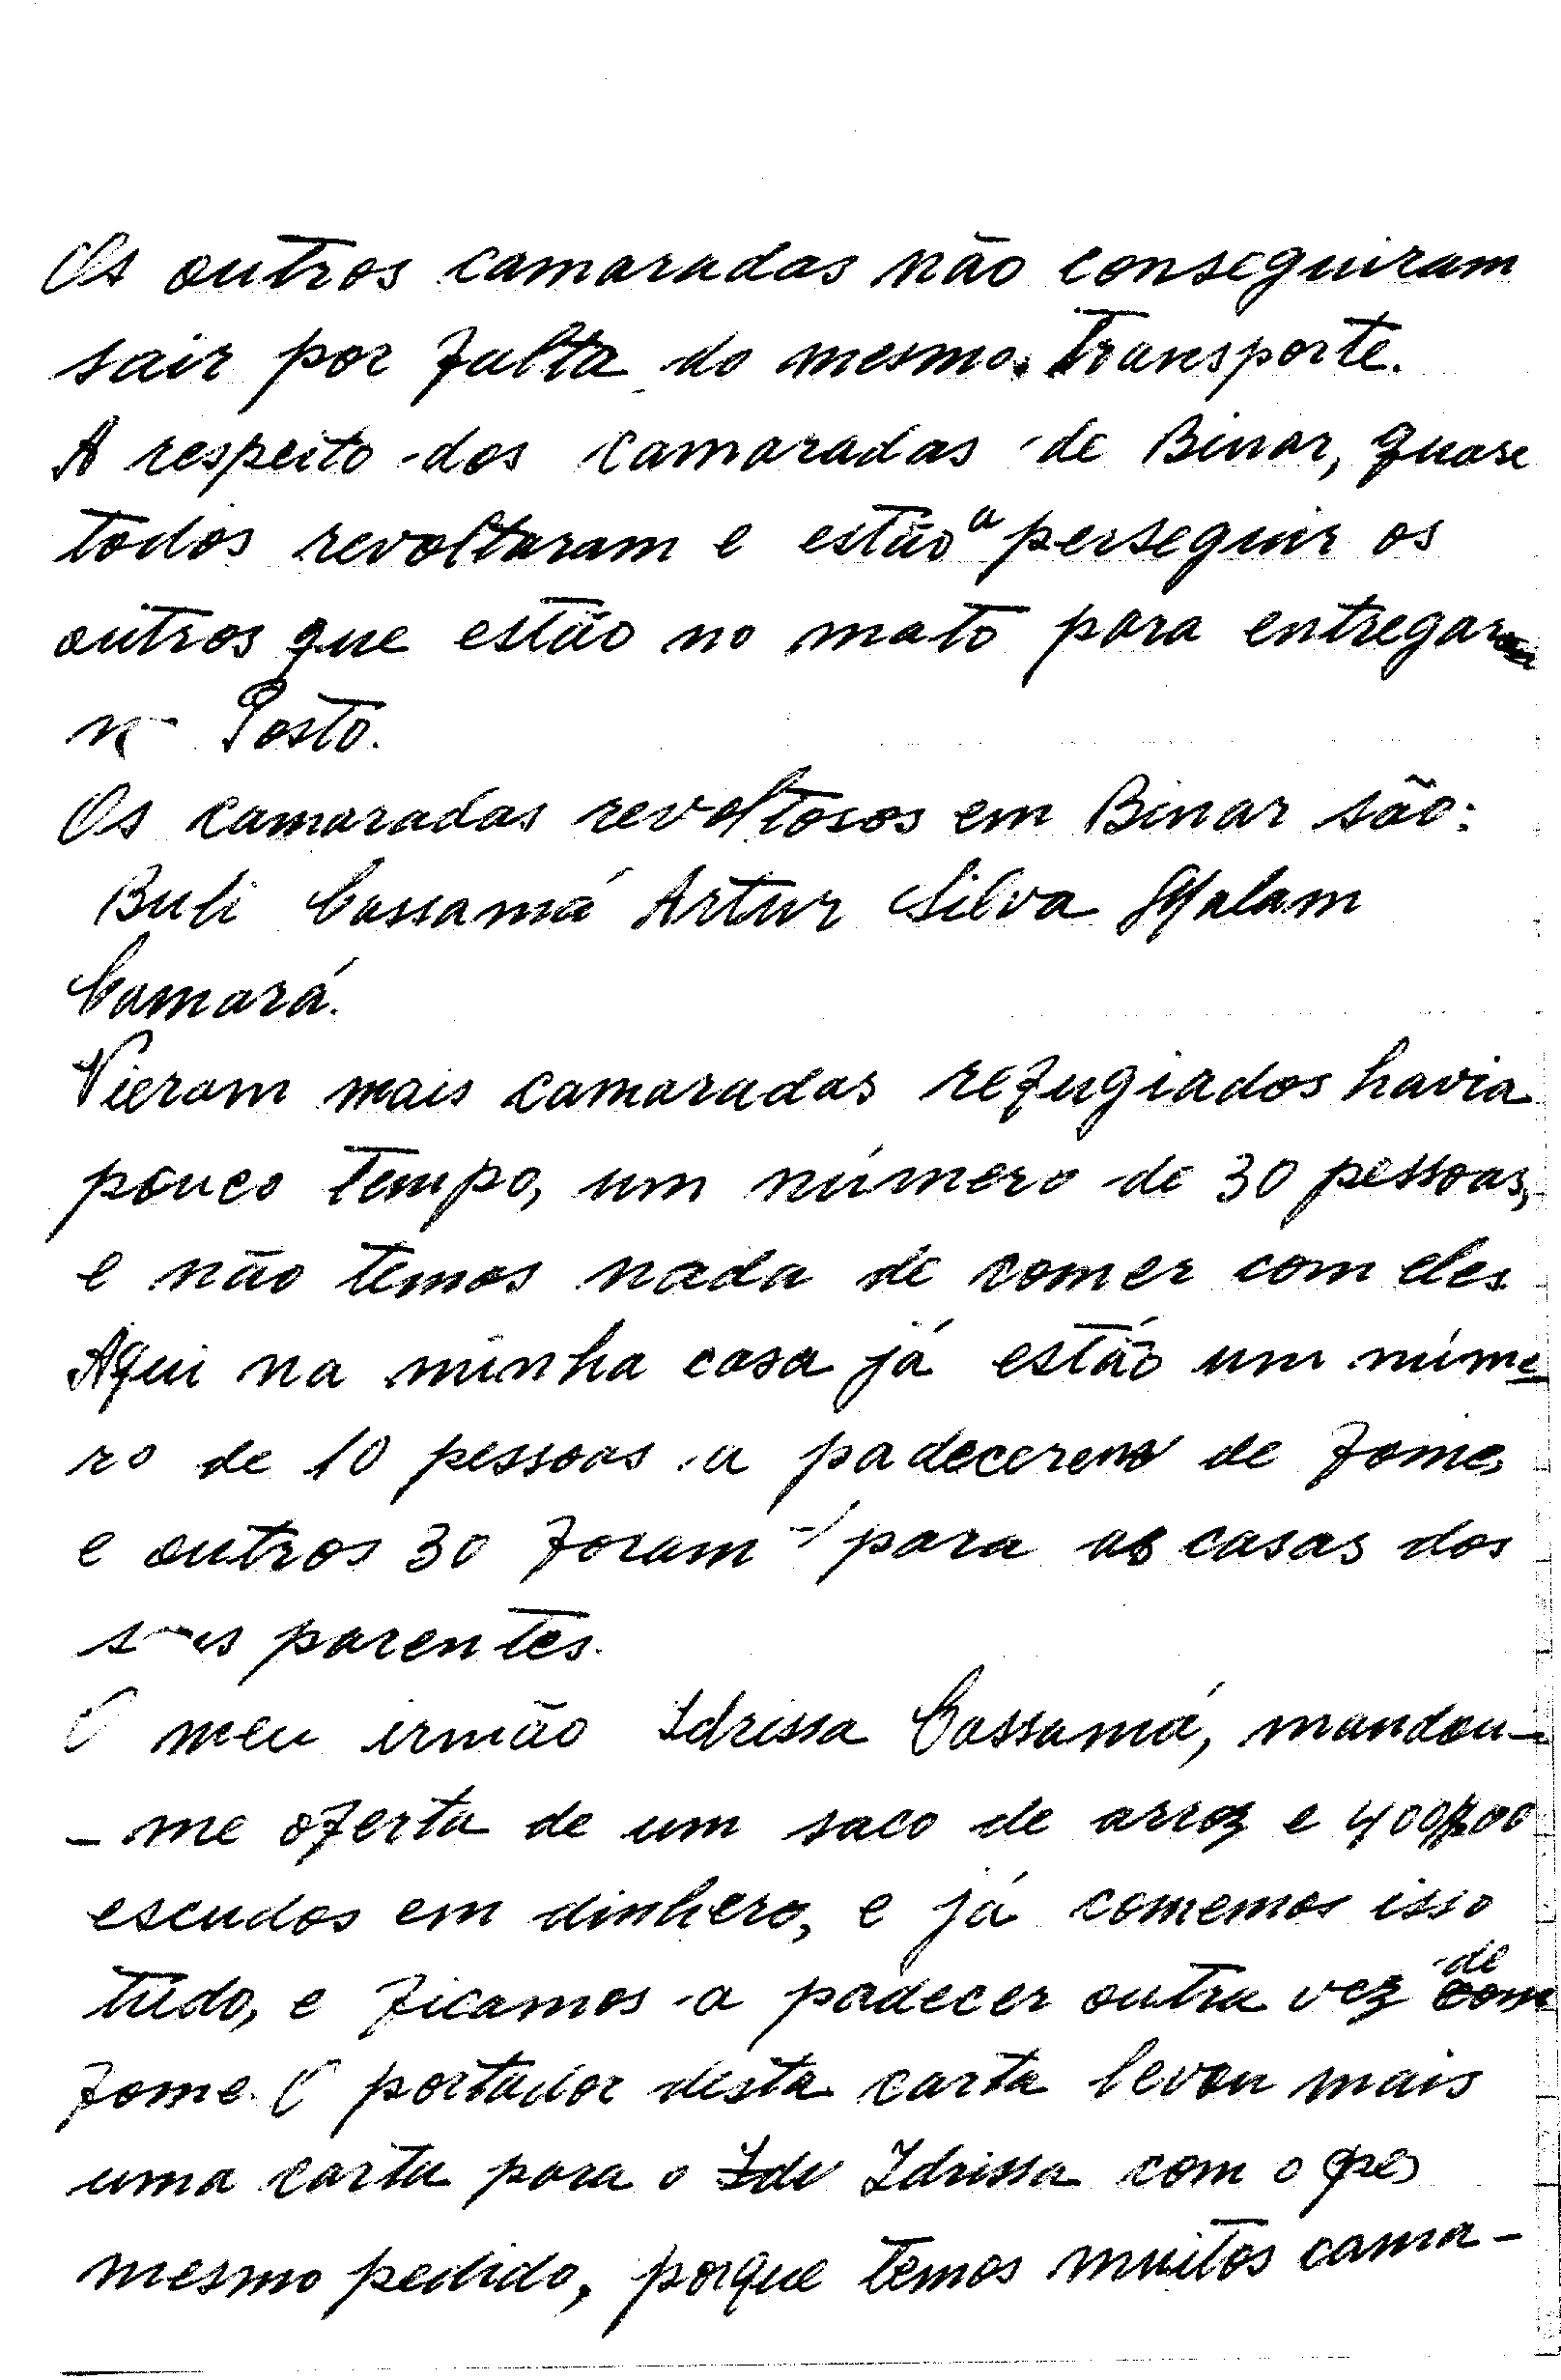 Os outros camaradas não conseguiram
sair por falta do mesmo transporte.
A respeito dos camaradas de Binar, quase
todos revoltaram e estão a perseguir os
outros que estão no mato para entregar
no Posto.
Os camaradas revoltosos em Binar são:
Buli Cassamá Artur Silva
Camará.
Vieram mais camaradas refugiados havia
pouco tempo, um número de 30 pessoas,
e não temos nada de comer com eles
Aqui na minha casa já estão um núme
ro de 10 pessoas a padecerem de fome,
e outros 30 foram para as casas dos
seus parentes.
O meu irmão Idrissa Cassamá, mandou-
-me oferta de um saco de arroz e 400$00
escudos em dinhero, e já comemos isso
tudo, e ficamos a padecer outra vez de
fome. O portador desta carta levou mais
uma carta para o Idrissa com o
mesmo pedido, porque temos muitos cama-